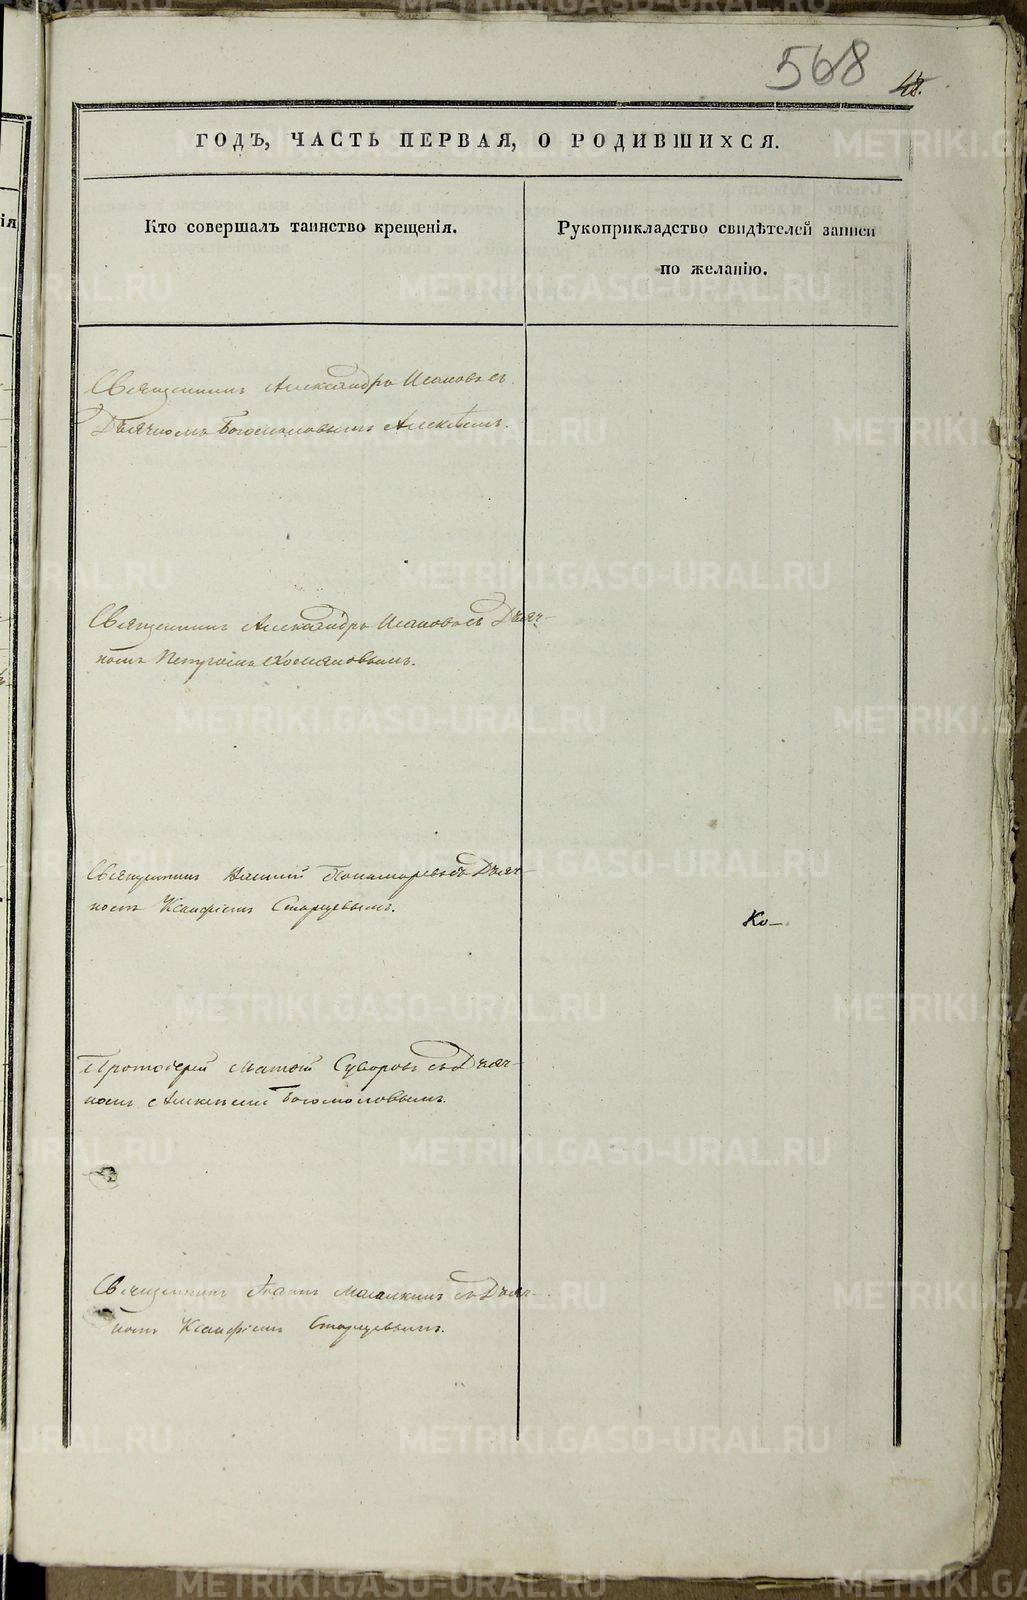 568
48.
ГОДЪ, ЧАСТЬ ПЕРВАЯ, О РОДИВШИХСЯ.
Кто совершалъ таинство крещенія.
Рукоприкладство свидѣтелей записи
по желанію.
Священникъ Александръ съ
Дьячкомъ Богомоловымъ Алексѣемъ.
Священникъ Александръ съ Дьяч-
комъ Петромъ
Священникъ Василій Пономаревъ съ Дьяч-
комъ Ксанфіемъ Старцевымъ.
Ко-
Протоіерей Матѳій Суворовъ съ Дьяч-
комъ Алексѣемъ Богомоловымъ.
Священникъ Іоаннъ съ Дьяч-
комъ Ксанфіемъ Старцевымъ.
METRIKI.GASO-URAL.RU